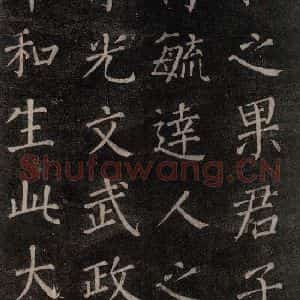 之果君子
毓達人之
光文武政
和生此大
Shufawang.CN